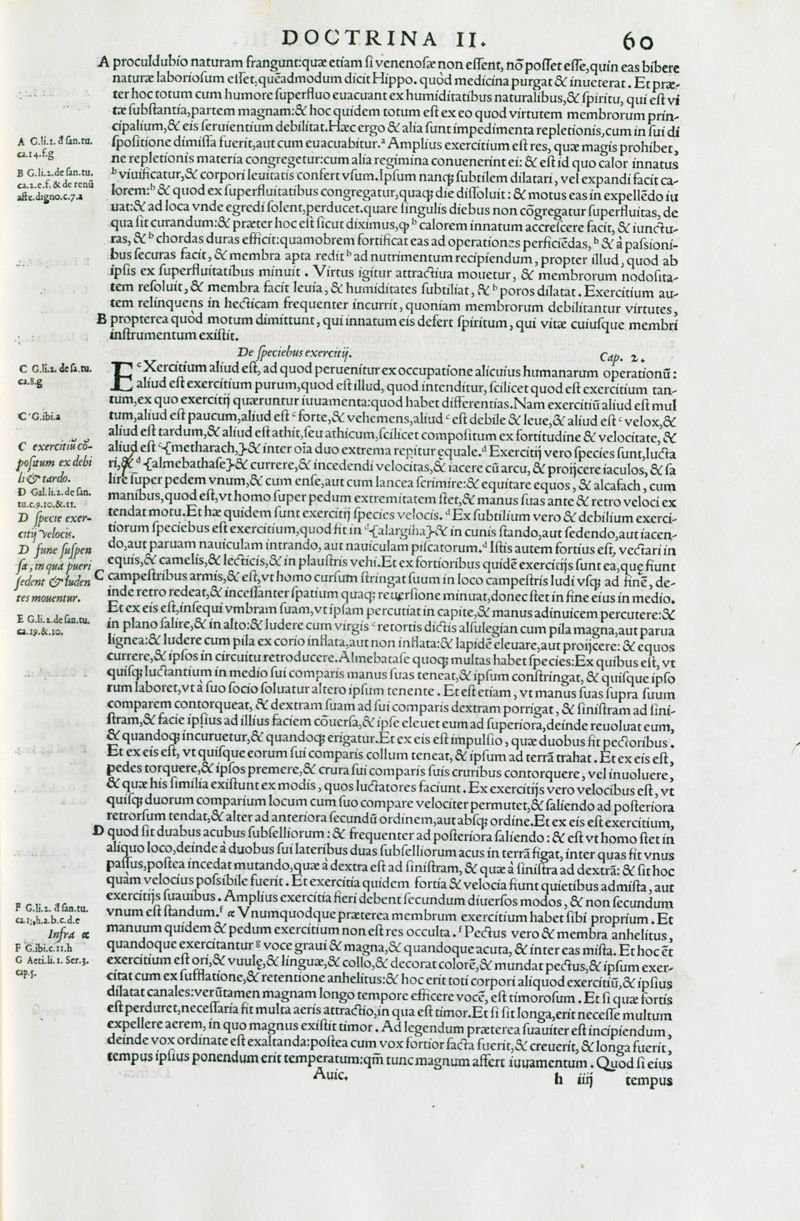 DOCTRINA II. 60
A proculdubio naturam frangunt:quæ etiam ſi venenoſæ non eſſent, nõ poſſet eſſe,quin eas bibere
naturæ laborioſum eſſet,quẽadmodum dicit Hippo. quòd medicina purgat & inueterat. Et præ-
ter hoc totum cum humore ſuperfluo euacuant ex humiditatibus naturalibus,& ſpiritu, qui eſt vi
tæ ſubſtantia,partem magnam:& hoc quidem totum eſt ex eo quod virtutem membrorum prin-
cipalium,& eis ſeruientium debilitat.Hæc ergo & alia ſunt impedimenta repletionis,cum in ſui di
A G.li.1. đ ſan.tu.
ca.14.f.g
ſpoſitione dimiſſa fuerit,aut cum euacuabitur.ᵃ Amplius exercitium eſt res, quæ magis prohibet,
ne repletionis materia congregetur:cum alia regimina conuenerint ei: & eſt id quo calor innatus
B G.li.2.de ſan.tu.
ca.2.e.f. & de renũ
affe.digno.c.7.a
ᵇ viuificatur,& corpori leuitatis confert vſum.Ipſum nanq; ſubtilem dilatari, vel expandi facit ca-
lorem:ᵇ & quod ex ſuperfluitatibus congregatur,quaq; die diſſoluit : & motus eas in expellẽdo iu
uat:& ad loca vnde egredi ſolent,perducet.quare ſingulis diebus non cõgregatur ſuperfluitas, de
qua ſit curandum:& præter hoc eſt ſicut diximus,ꝙ ᵇ calorem innatum accreſcere facit, & iunctu-
ras, & ᵇ chordas duras efficit:quamobrem fortificat eas ad operationes perficiẽdas, ᵇ & à paſsioni-
bus ſecuras facit, & membra apta redit ᵇ ad nutrimentum recipiendum, propter illud, quod ab
ipſis ex ſuperfluitatibus minuit . Virtus igitur attractiua mouetur, & membrorum nodoſita-
tem reſoluit, & membra facit leuia, & humiditates ſubtiliat , & ᵇ poros dilatat . Exercitium au-
tem relinquens in hecticam frequenter incurrit, quoniam membrorum debilitantur virtutes,
B propterea quòd motum dimittunt, qui innatum eis defert ſpiritum, qui vitæ cuiuſque membri
inſtrumentum exiſtit.
De ſpeciebus exercitij. Cap. 2.
C G.li.2. de ſa.tu.
ca.8.g
Eᶜ Xercitium aliud eſt, ad quod peruenitur ex occupatione alicuius humanarum operationũ:
aliud eſt exercitium purum,quod eſt illud, quod intenditur, ſcilicet quod eſt exercitium tan-
tum,ex quo exercitij quæruntur iuuamenta:quod habet differentias.Nam exercitiũ aliud eſt mul
C G.ibi.a
tum,aliud eſt paucum,aliud eſt ᶜ forte,& vehemens,aliud ᶜ eſt debile & leue,& aliud eſt ᶜ velox,&
aliud eſt tardum,& aliud eſt athit,ſeu athicum,ſcilicet compoſitum ex fortitudine & velocitate, &
C exercitiũ cõ-
poſitum ex debi
li & tardo.
aliud eſt ᶜ{metharach,}& inter oĩa duo extrema repitur ęquale.ᵈ Exercitij vero ſpecies ſunt,lucta
ri,& ᵈ {almebathaſe}& currere,& incedendi velocitas,& iacere cũ arcu,& proijcere iaculos,& ſa
lire ſuper pedem vnum,& cum enſe,aut cum lancea ſcrimire:& equitare equos , & alcafach , cum
D Gal.li.2.de ſan.
tu.c.9.10.&.11.
manibus,quod eſt,vt homo ſuper pedum extremitatem ſtet,& manus ſuas ante & retro veloci ex
tendat motu.Et hæ quidem ſunt exercitij ſpecies velocis. ᵈ Ex ſubtilium vero & debilium exerci-
D ſpecie exer-
citij velocis.
tiorum ſpeciebus eſt exercitium,quod fit in ᵈ{alargiha}& in cunis ſtando,aut ſedendo,aut iacen-
do,aut paruam nauiculam intrando, aut nauiculam piſcatorum.ᵈ Iſtis autem fortius eſt, vectari in
D fune ſuſpen
ſa, in qua pueri
ſedent & luden
tes mouentur.
equis,& camelis,& lecticis,& in plauſtris vehi.Et ex fortioribus quidẽ exercitijs ſunt ea,quę fiunt
C campeſtribus armis,& eſt,vt homo curſum ſtringat ſuum in loco campeſtris ludi vſq; ad finẽ, de-
inde retro redeat,& inceſſanter ſpatium quaq; reuerſione minuat,donec ſtet in fine eius in medio.
E G.li.2.de ſan.tu.
ca.19.&.10.
Et ex eis eſt,inſequi vmbram ſuam,vt ipſam percutiat in capite,& manus adinuicem percutere:&
in plano ſalire,& in alto:& ludere cum virgis ᶜ retortis dictis alſulegian cum pila magna,aut parua
lignea:& ludere cum pila ex corio inflata,aut non inflata:& lapidẽ eleuare,aut proijcere: & equos
currere,& ipſos in circuitu retroducere.Almebataſe quoq; multas habet ſpecies:Ex quibus eſt, vt
quiſq; luctantium in medio ſui comparis manus ſuas teneat,& ipſum conſtringat, & quiſque ipſo
rum laboret,vt à ſuo ſocio ſoluatur altero ipſum tenente . Et eſt etiam , vt manus ſuas ſupra ſuum
comparem contorqueat, & dextram ſuam ad ſui comparis dextram porrigat , & ſiniſtram ad ſini-
ſtram,& facie ipſius ad illius faciem cõuerſa,& ipſe eleuet eum ad ſuperiora,deinde reuoluat eum,
& quandoq; incuruetur,& quandoq; erigatur.Et ex eis eſt impulſio , quæ duobus fit pectoribus .
Et ex eis eſt, vt quiſque eorum ſui comparis collum teneat, & ipſum ad terrã trahat . Et ex eis eſt,
pedes torquere,& ipſos premere,& crura ſui comparis ſuis cruribus contorquere , vel inuoluere,
& quæ his ſimilia exiſtunt ex modis , quos luctatores faciunt . Ex exercitijs vero velocibus eſt, vt
quiſq; duorum comparium locum cum ſuo compare velociter permutet,& ſaliendo ad poſteriora
retrorſum tendat,& alter ad anteriora ſecundũ ordinem,aut abſq; ordine.Et ex eis eſt exercitium,
D quod fit duabus acubus ſubſelliorum : & frequenter ad poſteriora ſaliendo : & eſt vt homo ſtet in
aliquo loco,deinde à duobus ſui lateribus duas ſubſelliorum acus in terrã figat, inter quas ſit vnus
paſſus,poſtea incedat mutando,quæ à dextra eſt ad ſiniſtram, & quæ à ſiniſtra ad dextrã: & fit hoc
quàm velocius poſsibile fuerit . Et exercitia quidem fortia & velocia fiunt quietibus admiſta, aut
F G.li.2. đ ſan.tu.
exercitijs ſuauibus . Amplius exercitia fieri debent ſecundum diuerſos modos , & non ſecundum
vnum eſt ſtandum.ᶠ α Vnumquodque præterea membrum exercitium habet ſibi proprium . Et
Infra α
manuum quidem & pedum exercitium non eſt res occulta . ᶠ Pectus vero & membra anhelitus,
F G.ibi.c.11.h
G Aeti.li.1. Ser.3.
cap.5.
quandoque exercitantur ᵍ voce graui & magna,& quandoque acuta, & inter eas miſta. Et hoc ẽt
exercitium eſt ori,& vuulę,& linguæ,& collo,& decorat colorẽ,& mundat pectus,& ipſum exer-
citat cum exſufflatione,& retentione anhelitus:& hoc erit toti corpori aliquod exercitiũ,& ipſius
dilatat canales:verũtamen magnam longo tempore efficere vocẽ, eſt timoroſum . Et ſi quæ fortis
eſt perduret,neceſſaria fit multa aeris attractio,in qua eſt timor.Et ſi ſit longa,erit neceſſe multum
expellere aerem, in quo magnus exiſtit timor . Ad legendum præterea ſuauiter eſt incipiendum,
deinde vox ordinate eſt exaltanda:poſtea cum vox fortior facta fuerit,& creuerit, & longa fuerit,
tempus ipſius ponendum erit temperatum:qm̃ tunc magnum affert iuuamentum . Quod ſi eius
Auic. h iiij tempus